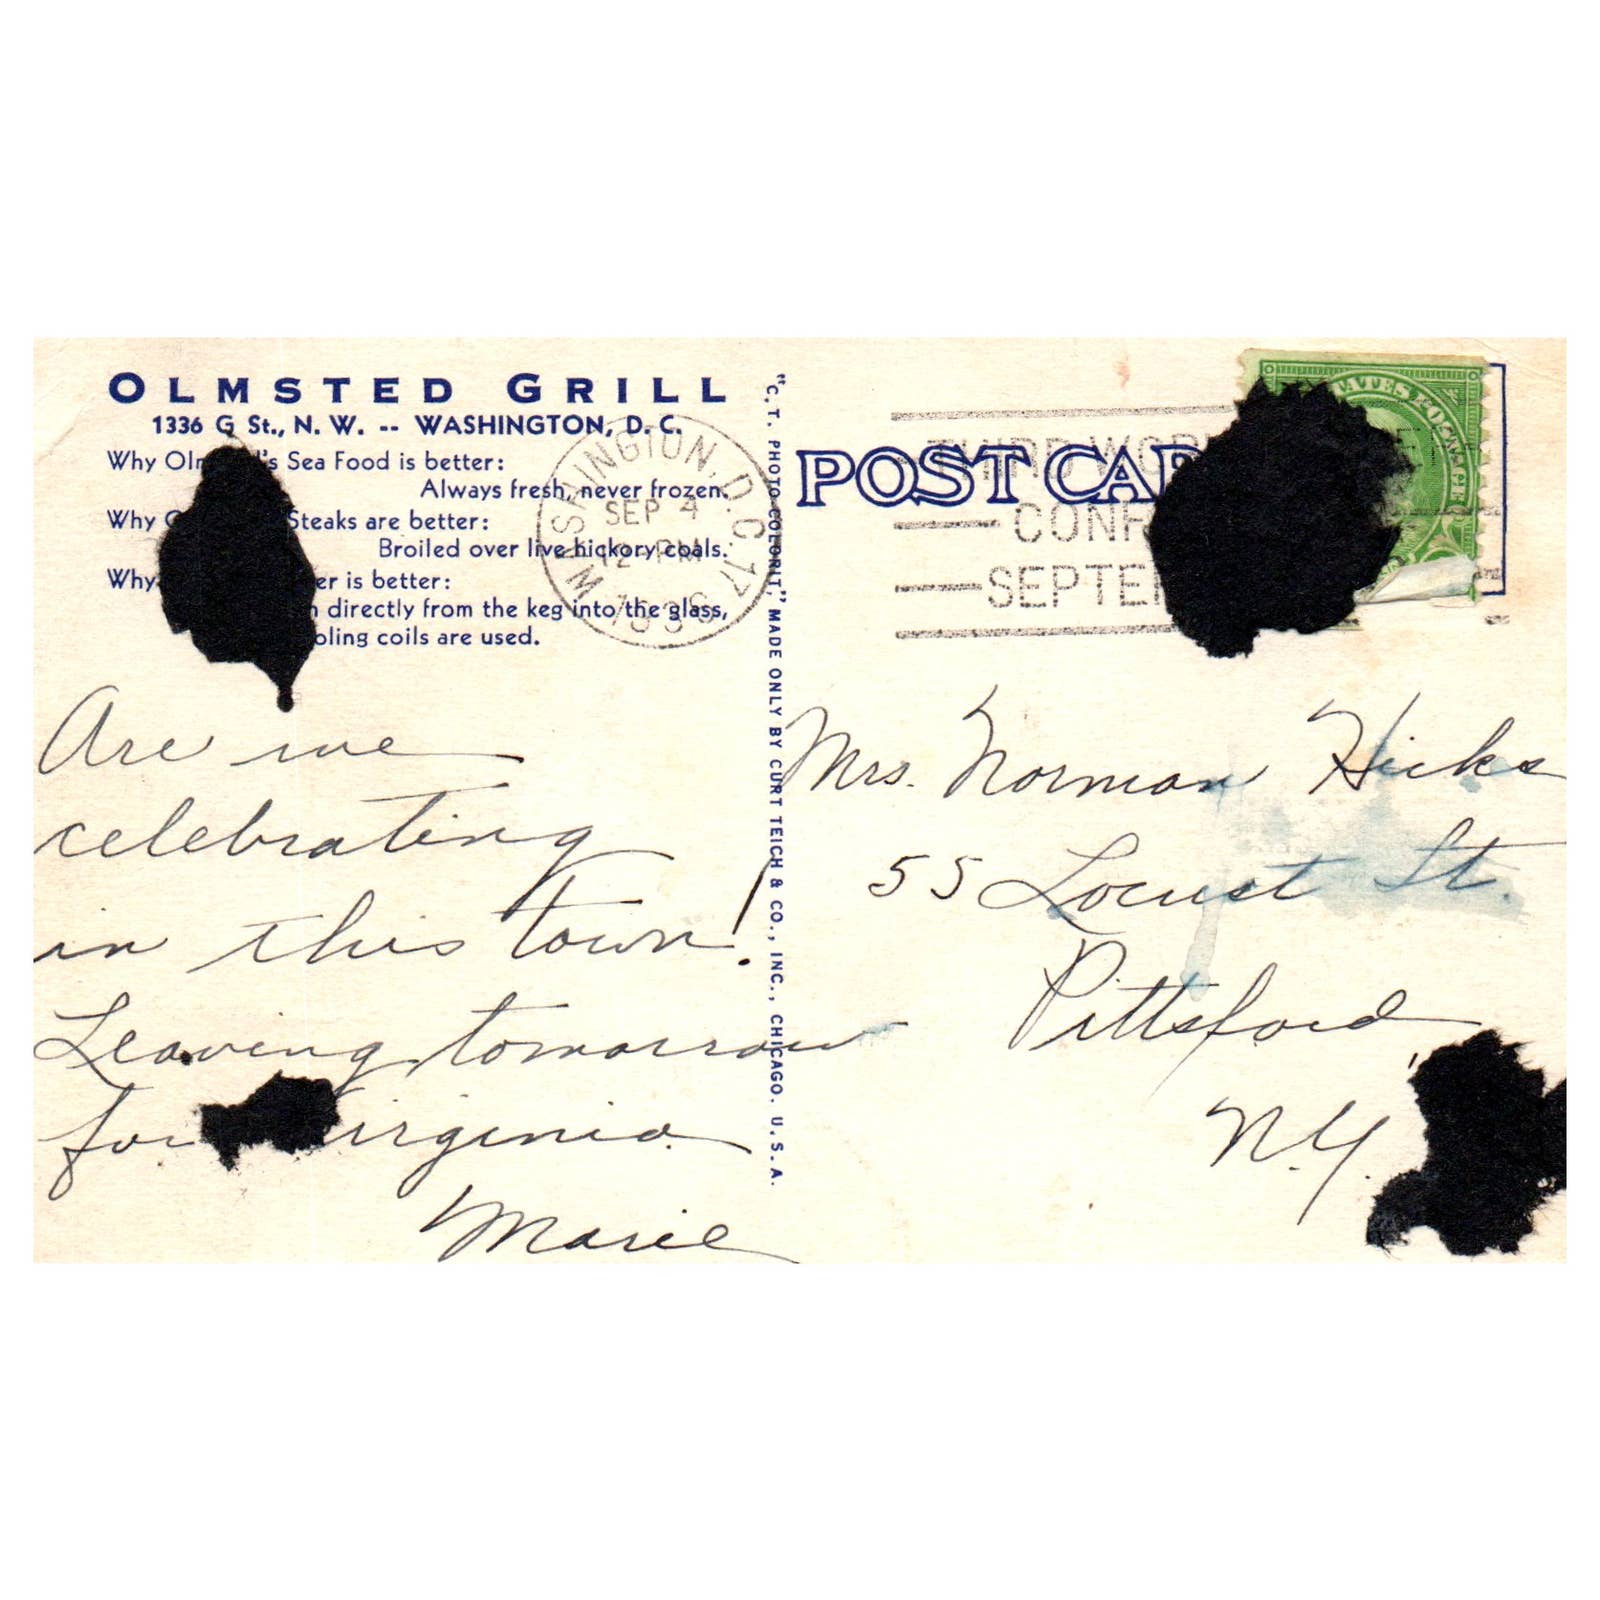 OLMSTED GRILL
1336 G St., N. W. -- WASHINGTON, D. C.
Why Olm d's Sea Food is better:
Always fresh, never frozen.
Why Steaks are better:
Broiled over live hickory coals.
Why er is better:
directly from the keg into the glass,
oling coils are used.
WASHINGTON, D.C. 17
SEP 4
12 PM
1936
"C. T. PHOTO-COLORIT," MADE ONLY BY CURT TEICH & CO., INC., CHICAGO. U. S. A.
POST CAR
THIRD WOR
CONF
SEPTE
STATES POSTAGE
Are we
celebrating
in this town!
Leaving tomorrow
for Virginia.
Marie
Mrs. Norman Hicks
55 Locust St.
Pittsford,
N.Y.